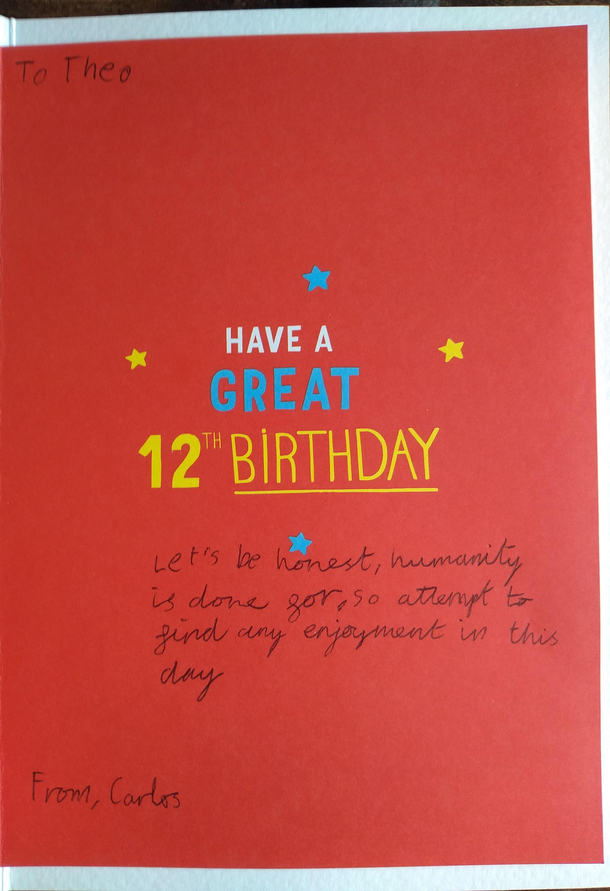 To Theo
HAVE A
GREAT
12TH BIRTHDAY
Let's be honest, humanity
is done for, so attempt to
find any enjoyment in this
day
From, Carlos